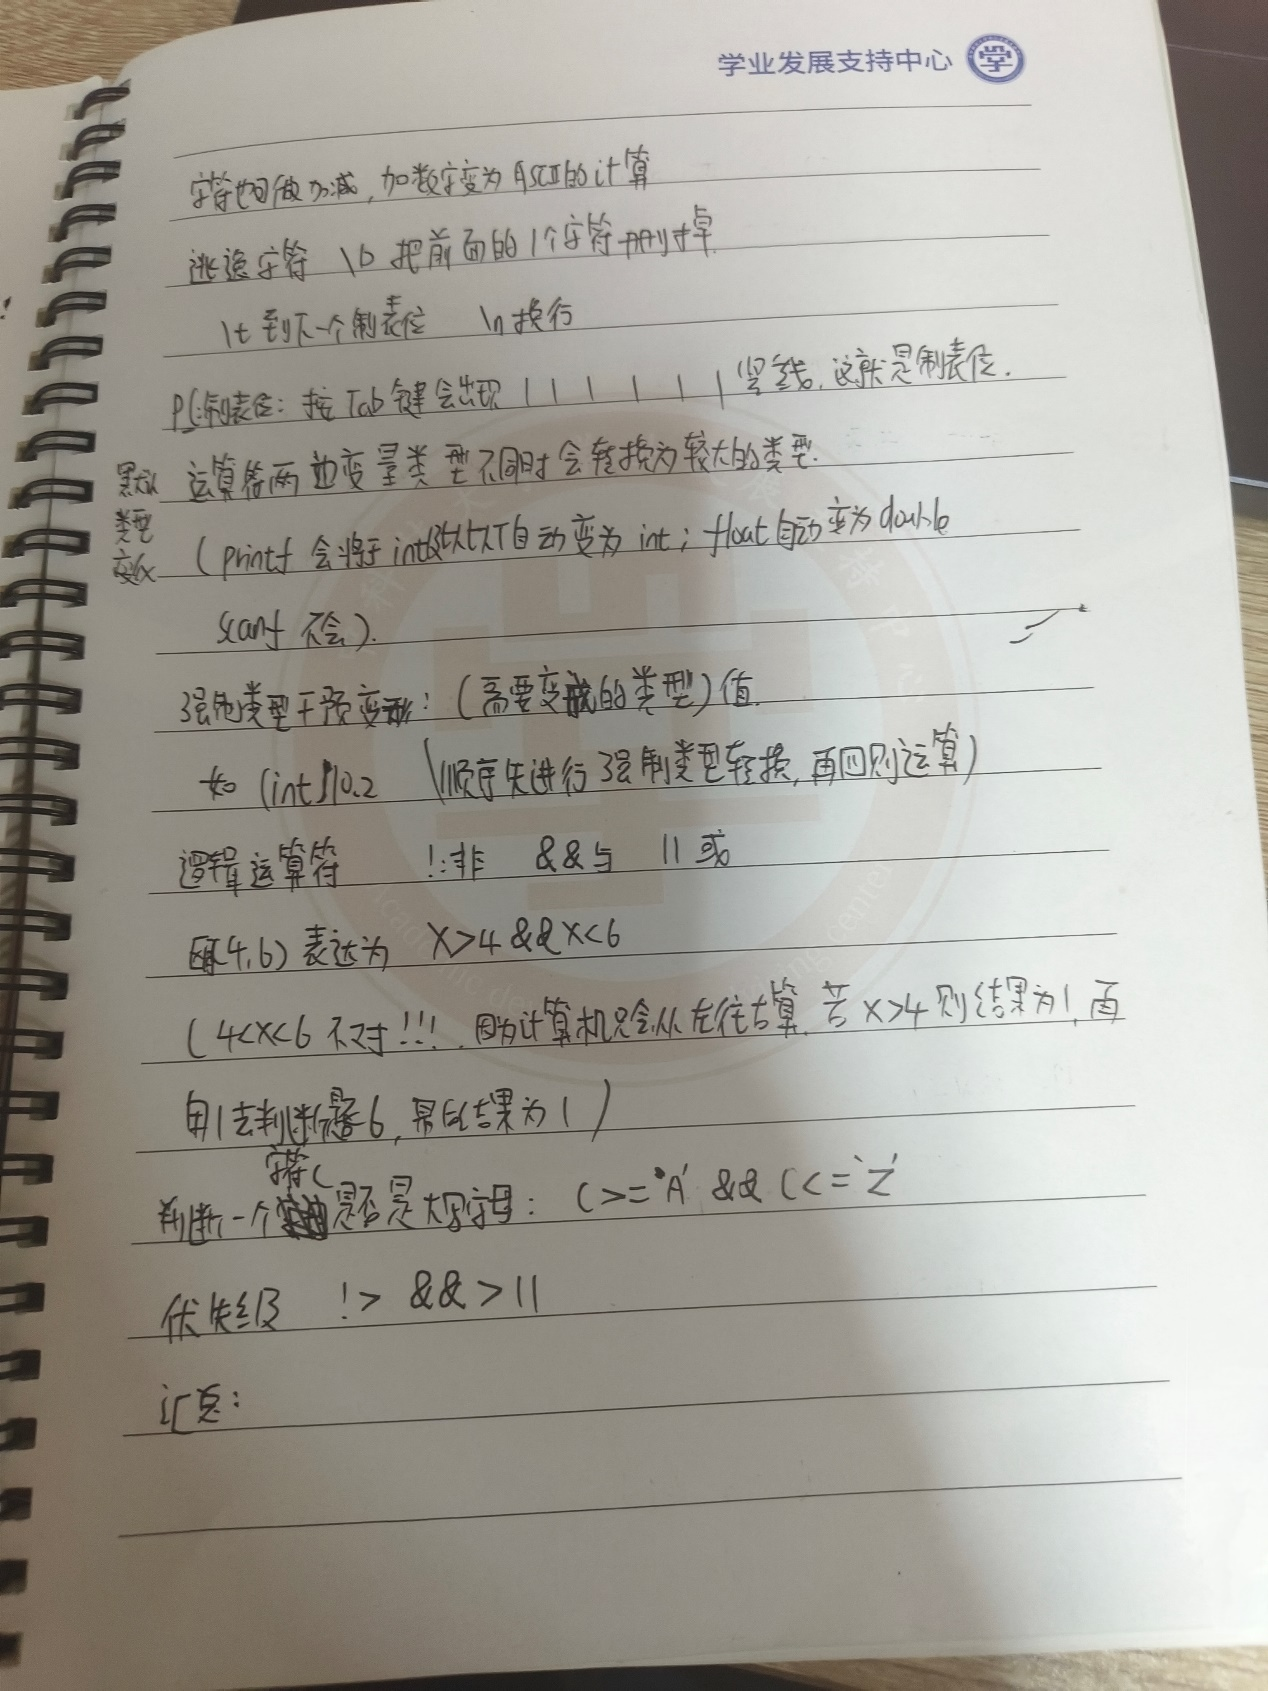 学业发展支持中心
字符也可做加减，加数字变为ASCII的计算
逃逸字符 \b 把前面的1个字符删掉
\t 到下一个制表位 \n 换行
PC制表位：按Tab键会出现 | | | | | | 竖线，这就是制表位.
默认类型变化
运算符两边变量类型不同时会转换为较大的类型.
(printf 会将于int及以下自动变为 int；float自动变为double
scanf 不会).
强制类型干预变形：(需要变成的类型)值.
如 (int)10.2 (顺序先进行强制类型转换，再四则运算)
逻辑运算符 !:非 &&与 ||或
(4,6) 表达为 X>4 && X<6
(4<X<6 不对!!! 因为计算机只会从左往右算，若X>4则结果为1，再
用1去判断 6，最后结果为1)
字符C
判断一个是否是大写字母：C>='A' && C<='Z'
优先级 !> && > ||
汇总：